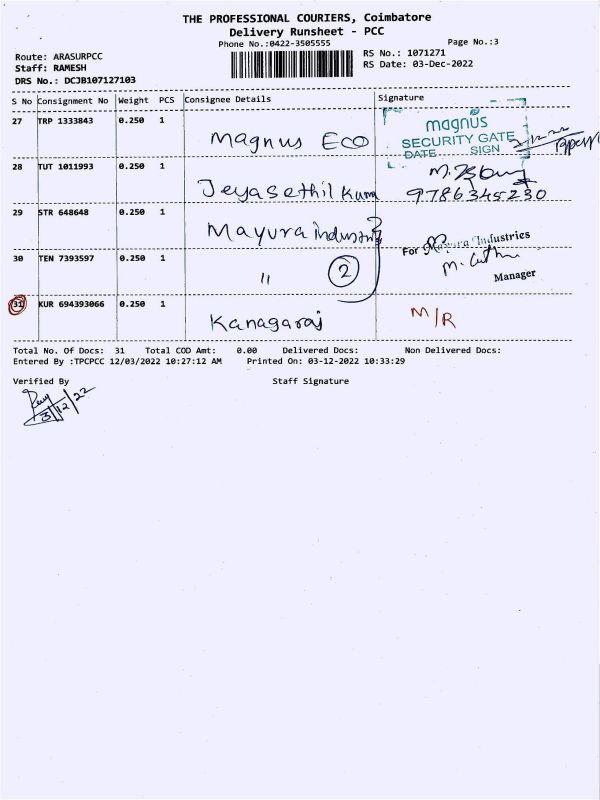 THE PROFESSIONAL COURIERS, Coimbatore
Delivery Runsheet - PCC
Phone No.:0422-3505555
Page No.:3
Route: ARASURPCC
RS No.: 1071271
Staff: RAMESH
RS Date: 03-Dec-2022
DRS No.: DCJB107127103
S No Consignment No Weight PCS Consignee Details Signature
27 TRP 1333843 0.250 1 Magnus Eco
magnus
SECURITY GATE
DATE SIGN
28 TUT 1011993 0.250 1 Jeyasethil Kuma
9786345230
29 STR 648648 0.250 1 Mayura Industries
For Mayura Industries
30 TEN 7393597 0.250 1 " 2
Manager
31 KUR 694393066 0.250 1 Kanagaraj M/R
Total No. Of Docs: 31 Total COD Amt: 0.00 Delivered Docs: Non Delivered Docs:
Entered By :TPCPCC 12/03/2022 10:27:12 AM Printed On: 03-12-2022 10:33:29
Verified By Staff Signature
3/12/22